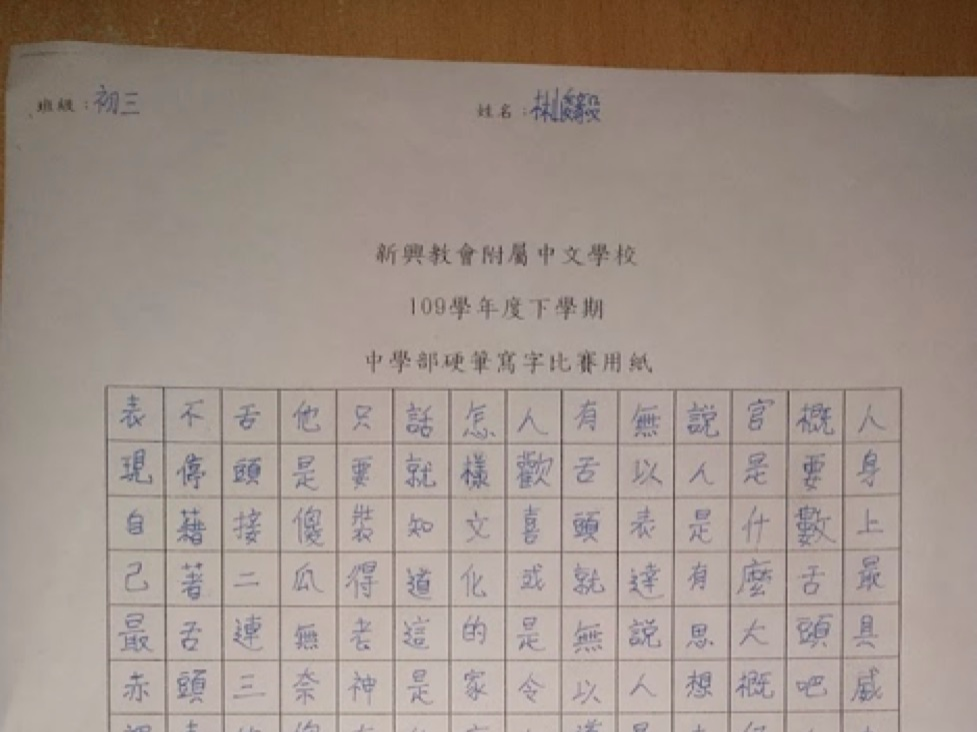 班級：初三
姓名：
新興教會附屬中文學校
109學年度下學期
中學部硬筆寫字比賽用紙
人身上最具威
概要數舌頭吧
官是什麼大概
說人是有思想
無以表達說人
有舌頭就無以
人歡喜或是令
怎樣文化的家
話就知道這是
只要裝得老神
他是傻瓜無奈
舌頭接二連三
不停藉著舌頭
表現自己最赤